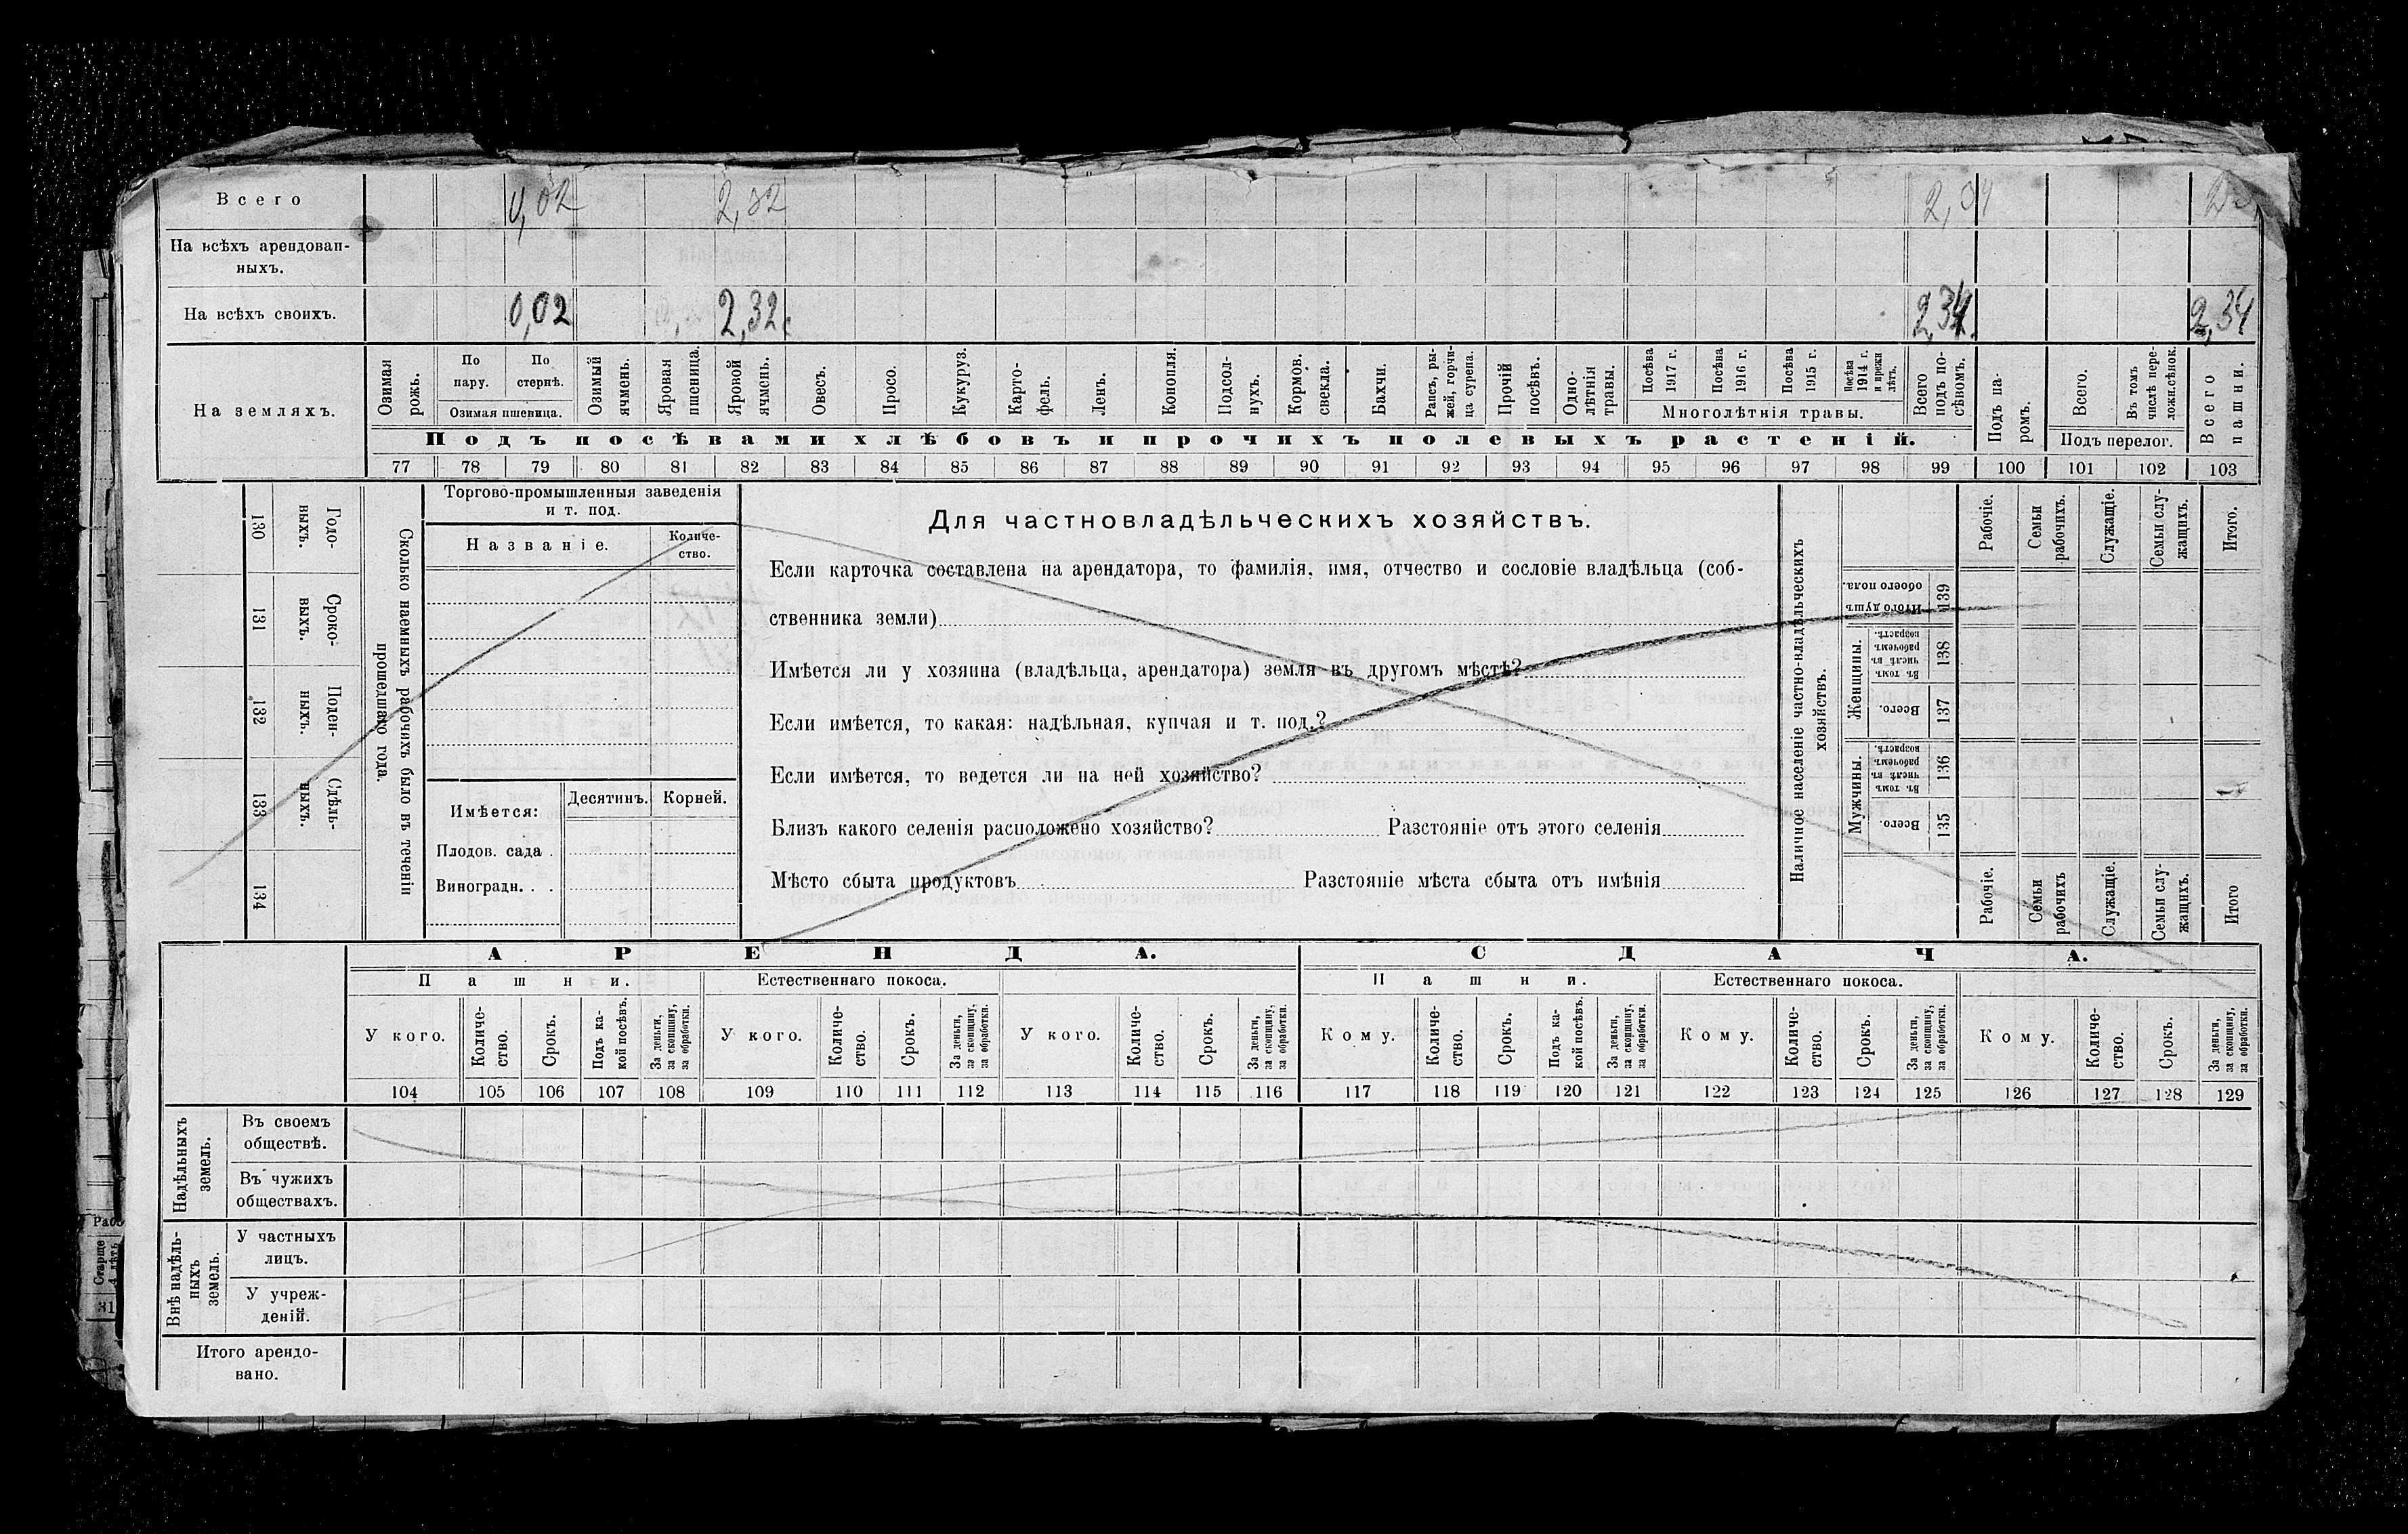 Всего 0,02 2,32 2,34
На всѣхъ арендован-
ныхъ.
На всѣхъ своихъ. 0,02 2,32 2,34 2,34
На земляхъ.
Озимая рожь.
По пару.
По стернѣ.
Озимая пшеница.
Озимый ячмень.
Яровая пшеница.
Яровой ячмень.
Овесъ.
Просо.
Кукуруз.
Карто-
фель.
Ленъ.
Конопля.
Подсол-
нухъ.
Кормов.
свекла.
Бахчи.
Рапсъ, ры-
жей, горчи-
ца сурепа.
Прочій
посѣвъ.
Одно-
лѣтнія
травы.
Посѣва
1917 г.
Посѣва
1916 г.
Посѣва
1915 г.
Посѣва
1914 г.
и прежн
лѣтъ.
Многолѣтнія травы.
Всего
подъ по-
сѣвомъ.
Подъ па-
ромъ.
Всего.
Въ томъ
числѣ пере-
ложн.сѣнок.
Подъ перелог.
Всего
пашни.
Подъ посѣвами хлѣбовъ и прочихъ полевыхъ растеній.
77 78 79 80 81 82 83 84 85 86 87 88 89 90 91 92 93 94 95 96 97 98 99 100 101 102 103
130 Годо-
выхъ.
131 Сроко-
выхъ.
132 Поден-
ныхъ.
133 Сдѣль-
ныхъ.
134
Сколько наемныхъ рабочихъ было въ теченіи
прошедшаго года.
Торгово-промышленныя заведенія
и т. под.
Названіе.
Количе-
ство.
Имѣется:
Десятинъ. Корней.
Плодов. сада .
Виноградн. . .
Для частновладѣльческихъ хозяйствъ.
Если карточка составлена на арендатора, то фамилія, имя, отчество и сословіе владѣльца (соб-
ственника земли)
Имѣется ли у хозяина (владѣльца, арендатора) земля въ другомъ мѣстѣ?
Если имѣется, то какая: надѣльная, купчая и т. под.?
Если имѣется, то ведется ли на ней хозяйство?
Близъ какого селенія расположено хозяйство? Разстояніе отъ этого селенія
Мѣсто сбыта продуктовъ Разстояніе мѣста сбыта отъ имѣнія
Наличное населеніе частно-владѣльческихъ
хозяйствъ.
Рабочіе.
Семьи
рабочихъ.
Служащіе.
Семьи слу-
жащихъ.
Итого.
Итого душъ
обоего пола.
139
Женщины.
Въ томъ
числѣ въ
рабочемъ
возрастѣ.
138
Всего.
137
Мужчины.
Въ томъ
числѣ въ
рабочемъ
возрастѣ.
136
Всего.
135
Рабочіе.
Семьи
рабочихъ
Служащіе.
Семьи слу-
жащихъ.
Итого
АРЕНДА. СДАЧА.
Пашни. Естественнаго покоса. Пашни. Естественнаго покоса.
У кого.
Количе-
ство.
Срокъ.
Подъ ка-
кой посѣвъ.
За деньги,
за скопщину,
за обработки.
У кого.
Количе-
ство.
Срокъ.
За деньги,
за скопщину,
за обработки.
У кого.
Количе-
ство.
Срокъ.
За деньги,
за скопщину,
за обработки.
Кому.
Количе-
ство.
Срокъ.
Подъ ка-
кой посѣвъ.
За деньги,
за скопщину,
за обработки.
Кому.
Количе-
ство.
Срокъ.
За деньги,
за скопщину,
за обработки.
Кому.
Количе-
ство.
Срокъ.
За деньги,
за скопщину,
за обработки.
104 105 106 107 108 109 110 111 112 113 114 115 116 117 118 119 120 121 122 123 124 125 126 127 128 129
Надѣльныхъ
земель.
Въ своемъ
обществѣ.
Въ чужихъ
обществахъ.
Внѣ надѣль-
ныхъ
земель.
У частныхъ
лицъ.
У учреж-
деній.
Итого арендо-
вано.
Старше
31